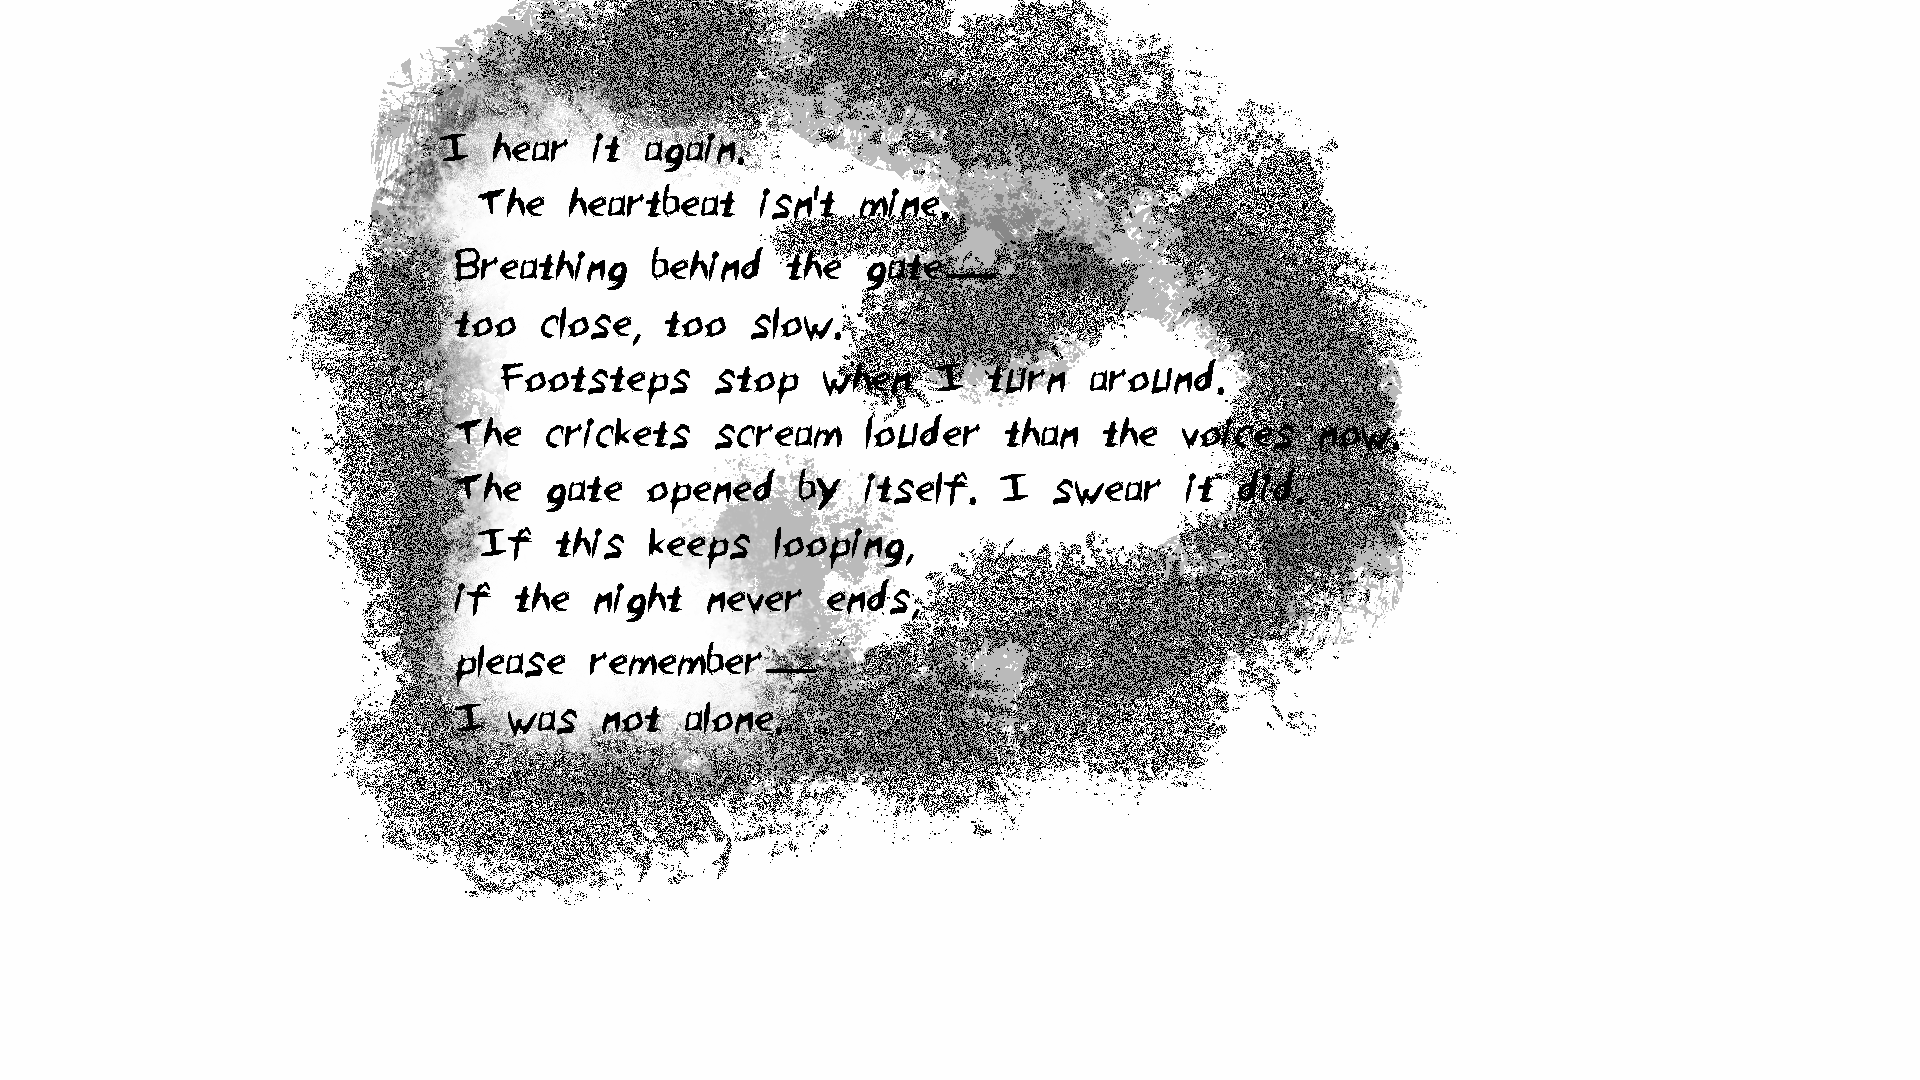 I hear it again.
The heartbeat isn't mine.
Breathing behind the gate—
too close, too slow.
Footsteps stop when I turn around.
The crickets scream louder than the voices now.
The gate opened by itself. I swear it did.
If this keeps looping,
if the night never ends,
please remember—
I was not alone.